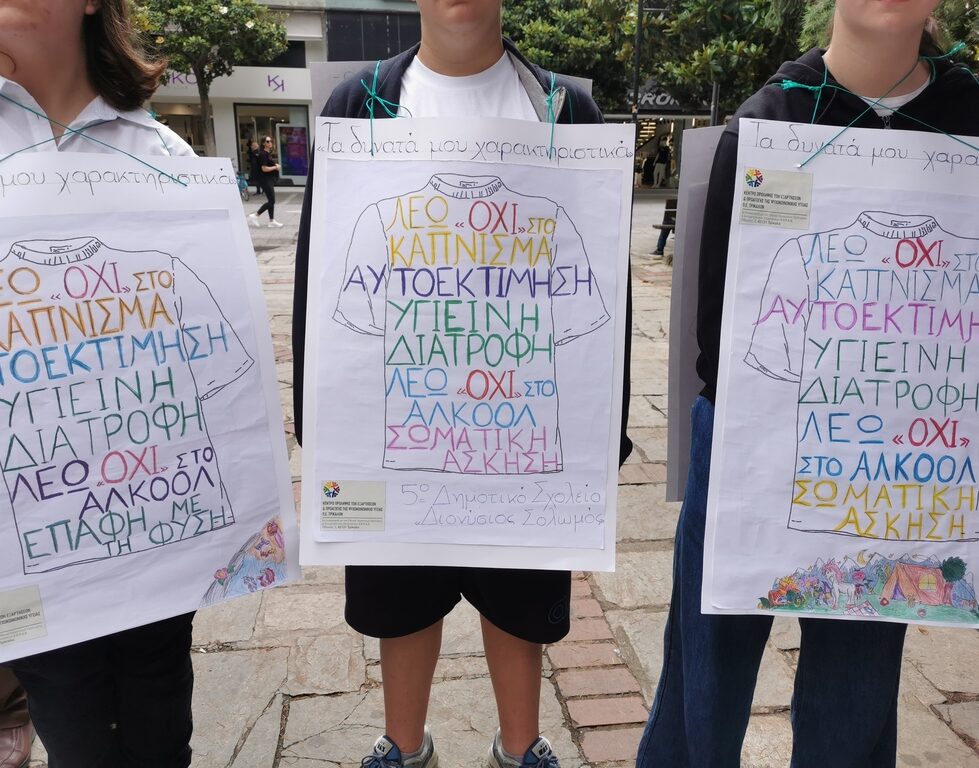 ΚΗ
μου χαρακτηριστικά»
ΛΕΩ «ΟΧΙ» ΣΤΟ
ΚΑΠΝΙΣΜΑ
ΑΥΤΟΕΚΤΙΜΗΣΗ
ΥΓΙΕΙΝΗ
ΔΙΑΤΡΟΦΗ
ΛΕΩ «ΟΧΙ» ΣΤΟ
ΑΛΚΟΟΛ
ΕΠΑΦΗ ΜΕ
ΤΗ ΦΥΣΗ
«Τα δυνατά μου χαρακτηριστικά»
ΛΕΩ «ΟΧΙ» ΣΤΟ
ΚΑΠΝΙΣΜΑ
ΑΥΤΟΕΚΤΙΜΗΣΗ
ΥΓΙΕΙΝΗ
ΔΙΑΤΡΟΦΗ
ΛΕΩ «ΟΧΙ» ΣΤΟ
ΑΛΚΟΟΛ
ΣΩΜΑΤΙΚΗ
ΑΣΚΗΣΗ
ΚΕΝΤΡΟ ΠΡΟΛΗΨΗΣ ΤΩΝ ΕΞΑΡΤΗΣΕΩΝ
& ΠΡΟΑΓΩΓΗΣ ΤΗΣ ΨΥΧΟΚΟΙΝΩΝΙΚΗΣ ΥΓΕΙΑΣ
Π.Ε. ΤΡΙΚΑΛΩΝ
5ο Δημοτικό Σχολείο
«Διονύσιος Σολωμός
Τα δυνατά μου χαρα
ΚΕΝΤΡΟ ΠΡΟΛΗΨΗΣ ΤΩΝ ΕΞΑΡΤΗΣΕΩΝ
& ΠΡΟΑΓΩΓΗΣ ΤΗΣ ΨΥΧΟΚΟΙΝΩΝΙΚΗΣ ΥΓΕΙΑΣ
Π.Ε. ΤΡΙΚΑΛΩΝ
ΛΕΩ «ΟΧΙ» ΣΤΟ
ΚΑΠΝΙΣΜΑ
ΑΥΤΟΕΚΤΙΜ
ΥΓΙΕΙΝΗ
ΔΙΑΤΡΟΦΗ
ΛΕΩ «ΟΧΙ»
ΣΤΟ ΑΛΚΟΟΛ
ΣΩΜΑΤΙΚΗ
ΑΣΚΗΣΗ